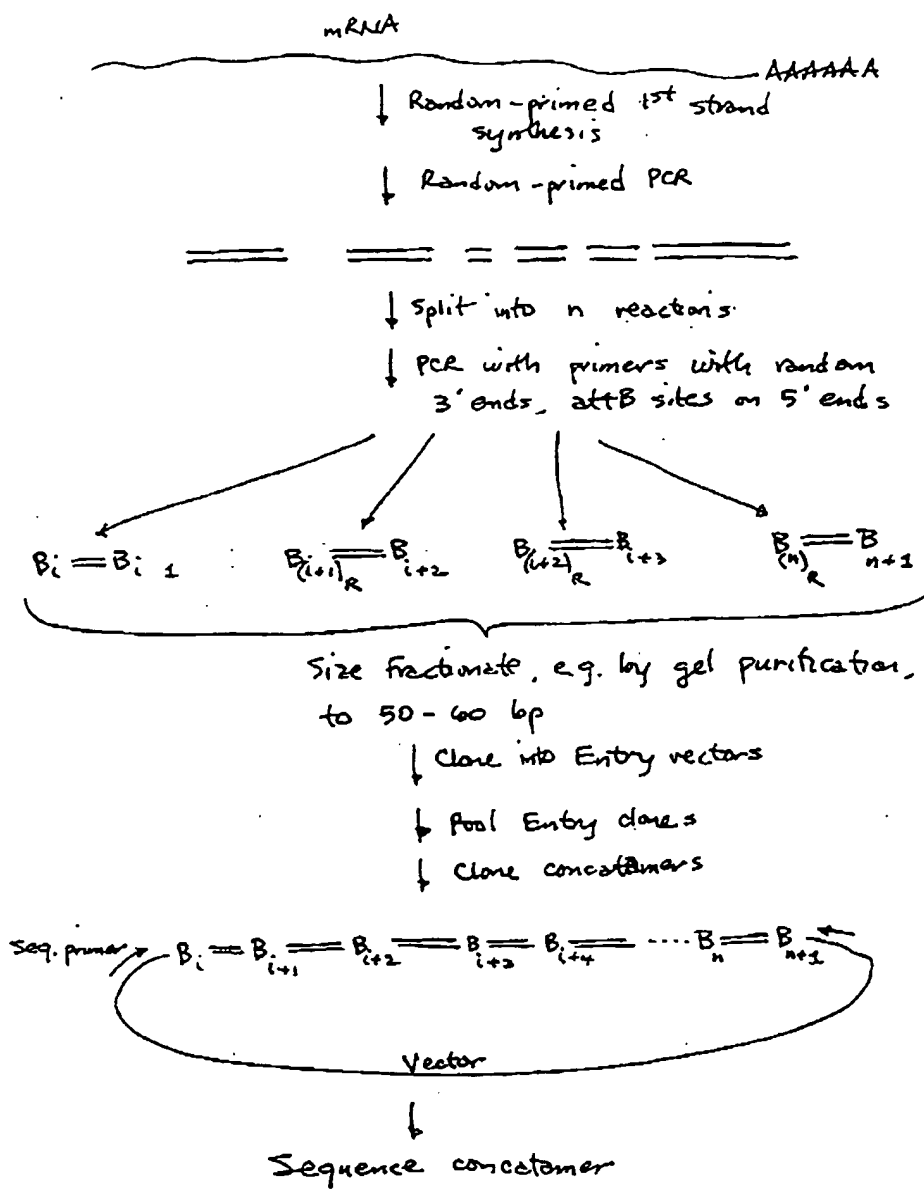 mRNA
AAAAAA
Random-primed 1st strand
synthesis
Random-primed PCR
Split into n reactions
PCR with primers with random
3' ends, attB sites on 5' ends
Bi = Bi 1
B(i+1)R = Bi+2
B(i+2)R = Bi+3
B(n)R = Bn+1
Size fractionate, e.g. by gel purification,
to 50-60 bp
Clone into Entry vectors
Pool Entry clones
Clone concatamers
Seq. primer Bi = Bi+1 = Bi+2 = Bi+3 = Bi+4 = .... Bn = Bn+1
Vector
Sequence concatamer